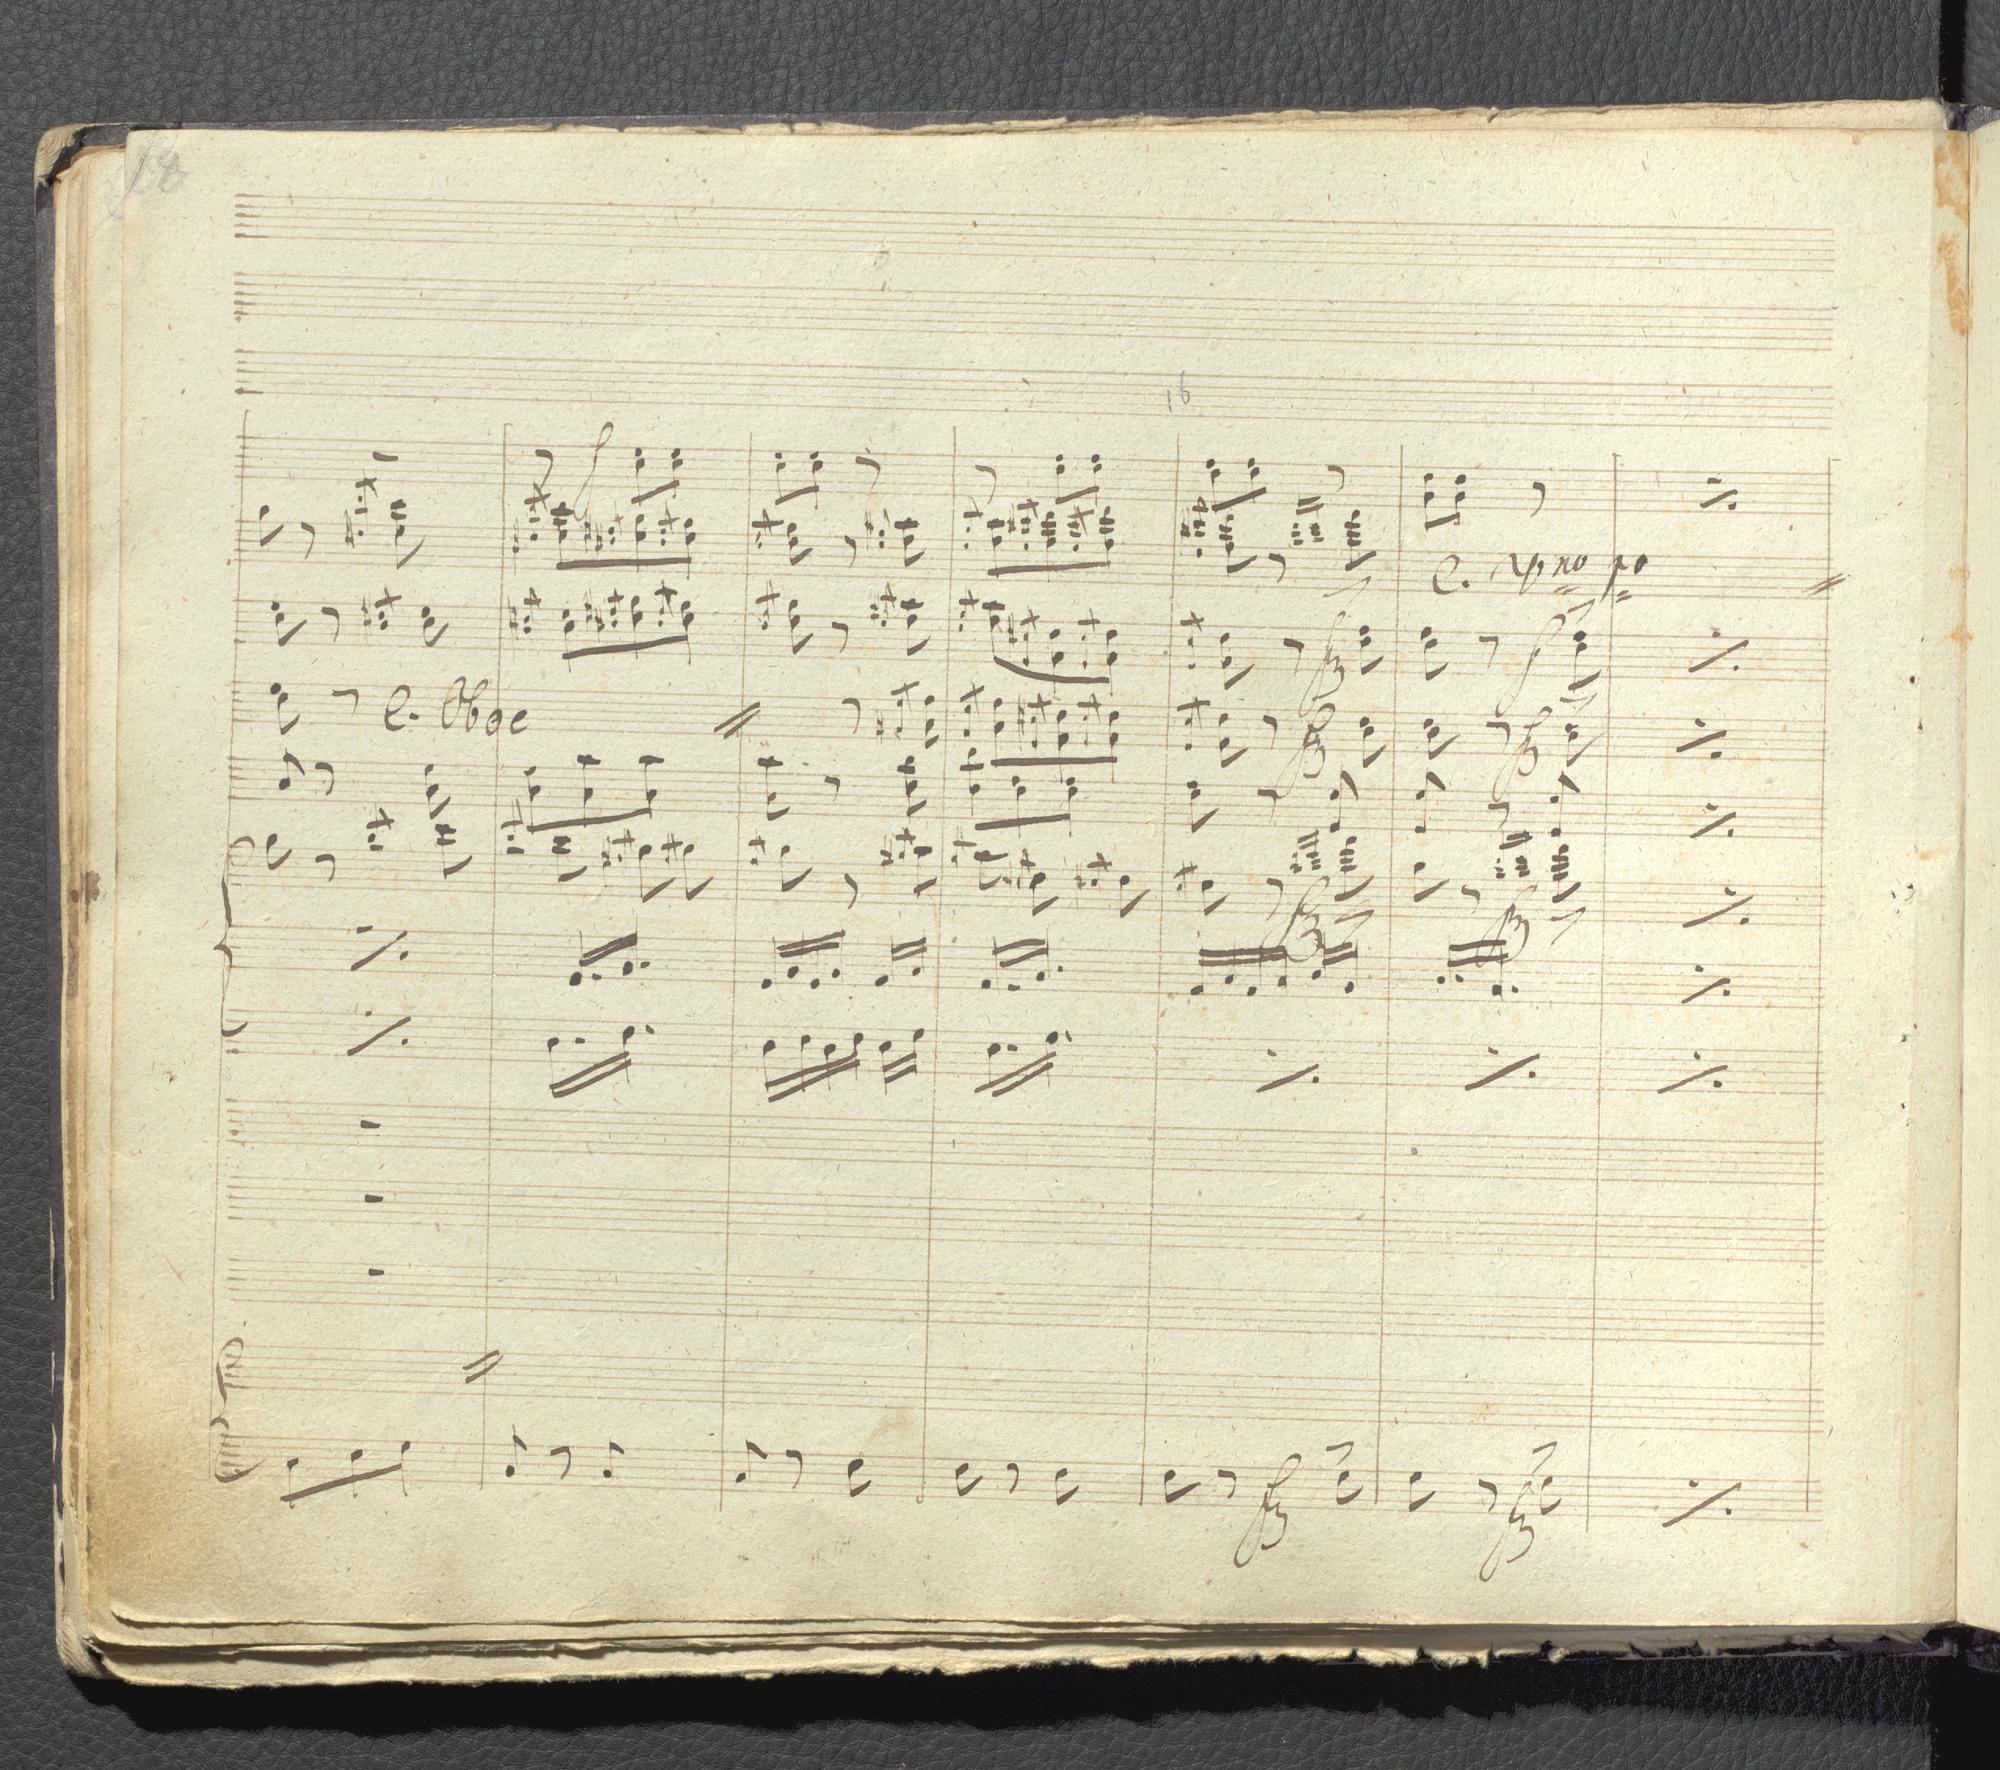 18
16
f
C. Vno po
fz f
C. Oboe
fz fz
fz fz
fz fz